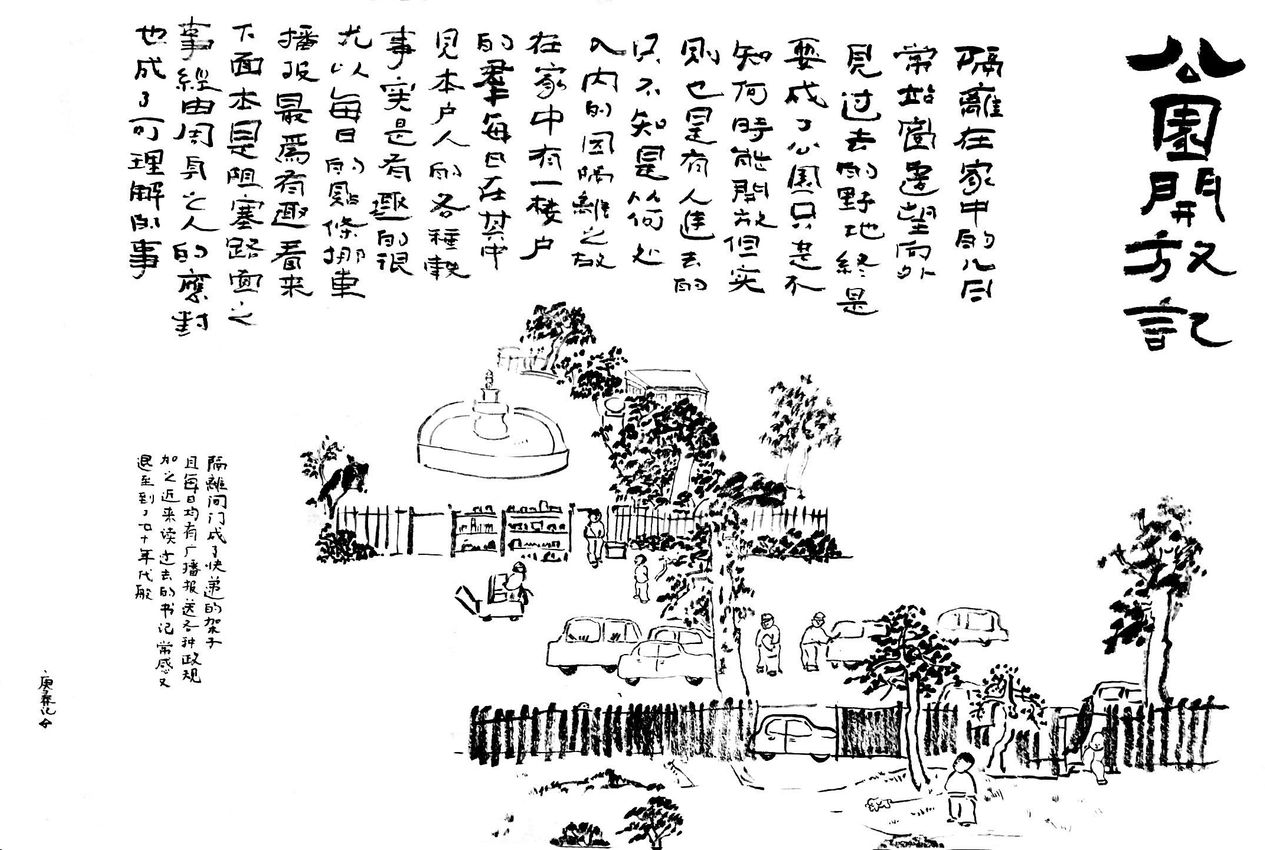 公園開放記
隔離在家中的几月
常站窗邊望向外
見过去的野地終是
要成了公園只是不
知何時能開放但实
則也是有人進去的
只不知是從何处
入内的因隔離之故
在家中有一楼户
的羣每日在其中
見本户人的各種軼
事实是有趣的很
尤以每日的點條挪車
播报最爲有趣看来
下面本是阻塞路面之
事經由周具之人的應封
也成了可理解的事
隔離间门成了快递的架子
且每日均有广播报送各种政规
加之近来读过去的书记常感又
退至到了七十年代般
庚